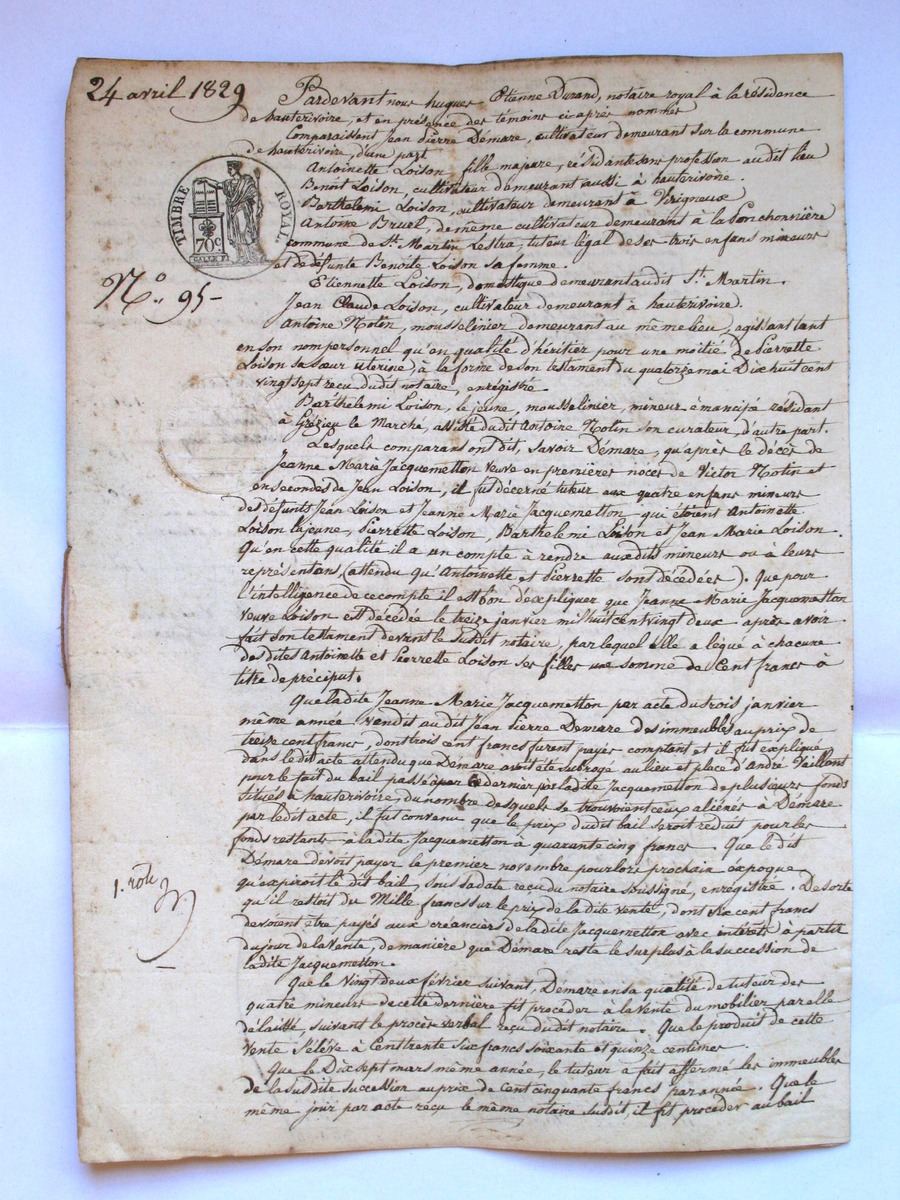 24 avril 1829
Pardevant nous hugues Etienne Durand, notaire royal à la résidence
de hauterivoire, et en présence des témoins ci après nommés
Comparaissent Jean Pierre Démare, cultivateur demeurant sur la commune
de hauterivoire, d'une part
Antoinette Loison, fille majure, résidante sans profession au dit lieu
Benoît Loison, cultivateur demeurant aussi à hauterivoire.
Barthelemi Loison, cultivateur demeurant à Virigneux
Antoine Bruel, de même cultivateur demeurant à la Ponchonnière
commune de St. Martin Lestra, tuteur légal de ses trois enfans mineurs
et de défunte Benoite Loison sa femme.
TIMBRE ROYAL
70c
N.o 95-
Etiennette Loison, domestique demeurant audit St. Martin.
Jean Claude Loison, cultivateur demeurant à hauterivoire.
Antoine Notin, mousselinier demeurant au même lieu, agissant tant
en son nom personnel qu'en qualité d'héritier pour une moitié de Pierrette
Loison sa sœur utérine, à la forme de son testament du quatorze mai Dix huit cent
vingt sept reçu du dit notaire, enregistré.
Barthelemi Loison, le jeune, mousselinier, mineur émancipé résidant
à Grézieu le Marché, assisté dudit Antoine Notin son curateur, d'autre part.
Lesquels comparans ont dit, savoir Démare, qu'après le décès de
Jeanne Marie Jacquemetton veuve en premières noces de Victor Notin et
en secondes de Jean Loison, il fut décerné tuteur aux quatre enfans mineurs
des défunts Jean Loison et Jeanne Marie Jacquemetton qui étoient Antoinette
Loison la jeune, Pierrette Loison, Barthelemi Loison et Jean Marie Loison.
Qu'en cette qualité il a un compte à rendre auxdits mineurs ou à leurs
représentans (attendu qu'Antoinette et Pierrette sont décédées). Que pour
l'intelligence de ce compte il est bon d'expliquer que Jeanne Marie Jacquemetton
veuve Loison est décédée le treize janvier mil huit cent vingt deux après avoir
fait son testament devant le susdit notaire, par lequel elle a légué à chacune
des dites Antoinette et Pierrette Loison ses filles une somme de Cent francs à
titre de préciput.
Que la dite Jeanne Marie Jacquemetton par acte du trois janvier
même année vendit au dit Jean Pierre Démare des immeubles au prix de
treize cent francs, dont trois cent francs furent payés comptant et il fut expliqué
dans le dit acte attendu que Démare avoit été subrogé au lieu et place d'André Vaillant
pour le fait du bail passé à ce dernier par la dite Jacquemetton de plusieurs fonds
situés à hauterivoire, du nombre desquels se trouvoient ceux aliénés à Démare
par le dit acte, il fut convenu que le prix dudit bail seroit réduit pour les
fonds restants à la dite Jacquemetton à quarante cinq francs. Que le dit
Démare devoit payer le premier novembre pour lors prochain époque
qu'expiroit le dit bail, sous la date reçu du notaire soussigné, enregistré. De sorte
qu'il restoit du Mille francs sur le prix de la dite vente, dont six cent francs
devoient être payés aux créanciers de la dite Jacquemetton avec intérêts à partir
du jour de la vente, de manière que Démare reste le surplus à la succession de
la dite Jacquemetton.
1. role
Que le Vingt deux février suivant, Démare en sa qualité de tuteur des
quatre mineurs de cette dernière fit procéder à la vente du mobilier par elle
délaissé, suivant le procès verbal reçu du dit notaire. Que le produit de cette
vente s'élève à Cent trente six francs soixante et quinze centimes.
Que le Dix sept mars même année, le tuteur a fait affermé les immeubles
de la susdite succession au prix de Cent cinquante francs par année. Que le
même jour par acte reçu le même notaire susdit, il fit procéder au bail